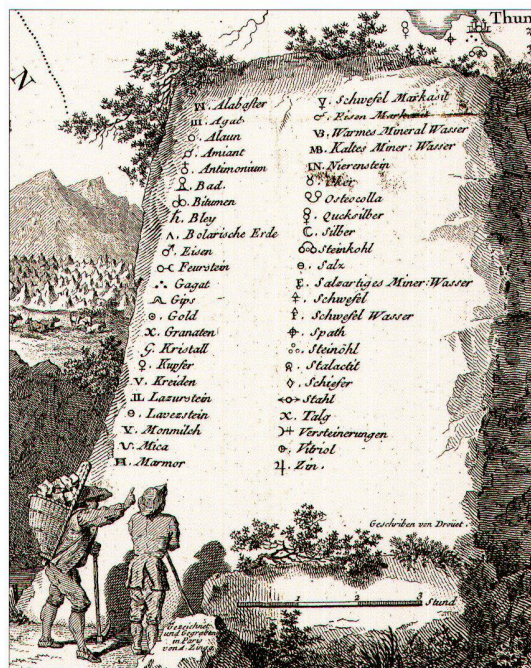 Thun
N
Alabaster
Agat
Alaun
Amiant
Antimonium
Bad.
Bitumen
Bley
Bolarische Erde
Eisen
Feurstein
Gagat
Gips
Gold
Granaten
Kristall
Kupfer
Kreiden
Lazurstein
Lavezstein
Monmilch
Mica
Marmor
Schwefel Markasit
Eisen Markasit
Warmes Mineral Wasser
Kaltes Miner: Wasser
Nierenstein
Oker
Osteocolla
Quecksilber
Silber
Steinkohl
Salz
Salzartiges Miner: Wasser
Schwefel
Schwefel Wasser
Spath
Steinöhl
Stalactit
Schiefer
Stahl
Talg
Versteinerungen
Vitriol
Zin.
Geschriben von Drouet.
1 2 3 Stund
Gezeichnet
und gegraben
in Paris
von A. Zingg.